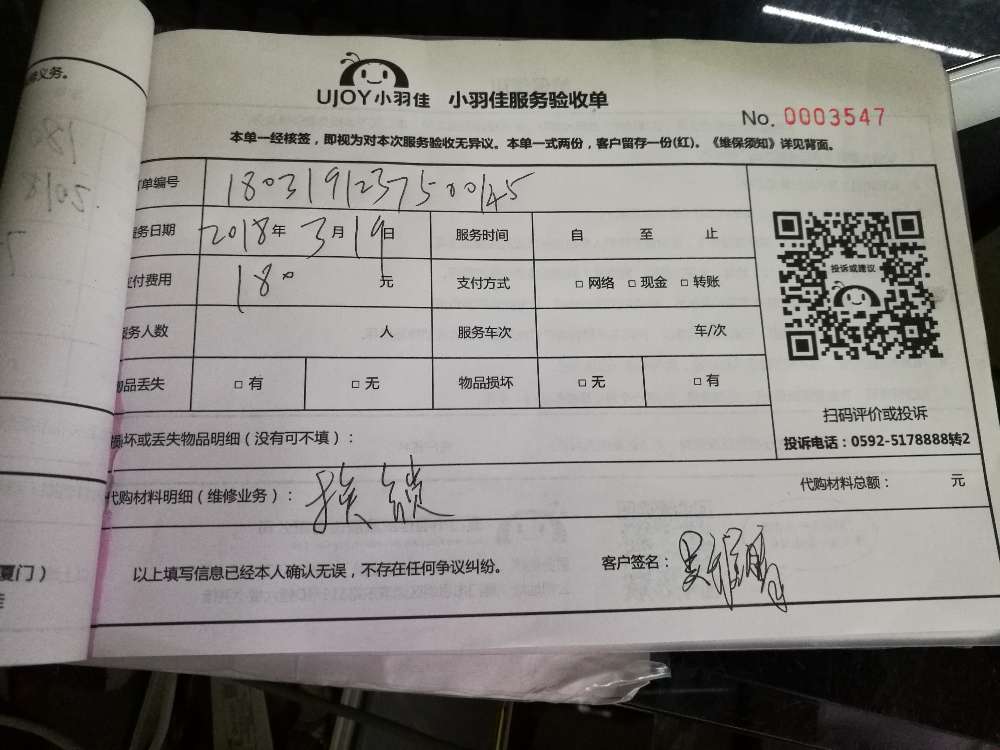 务。
UJOY小羽佳 小羽佳服务验收单
No. 0003547
本单一经核签，即视为对本次服务验收无异议。本单一式两份，客户留存一份(红)。《维保须知》详见背面。
单编号 180319123750045
务日期 2018年 3月 19日 服务时间 自 至 止
付费用 180 元 支付方式 □ 网络 □ 现金 □ 转账
务人数 人 服务车次 车/次
品丢失 □ 有 □ 无 物品损坏 □ 无 □ 有
投诉或建议
扫码评价或投诉
投诉电话：0592-5178888转2
坏或丢失物品明细（没有可不填）：
代购材料明细（维修业务）： 换锁 代购材料总额： 元
以上填写信息已经本人确认无误，不存在任何争议纠纷。 客户签名：
厦门）